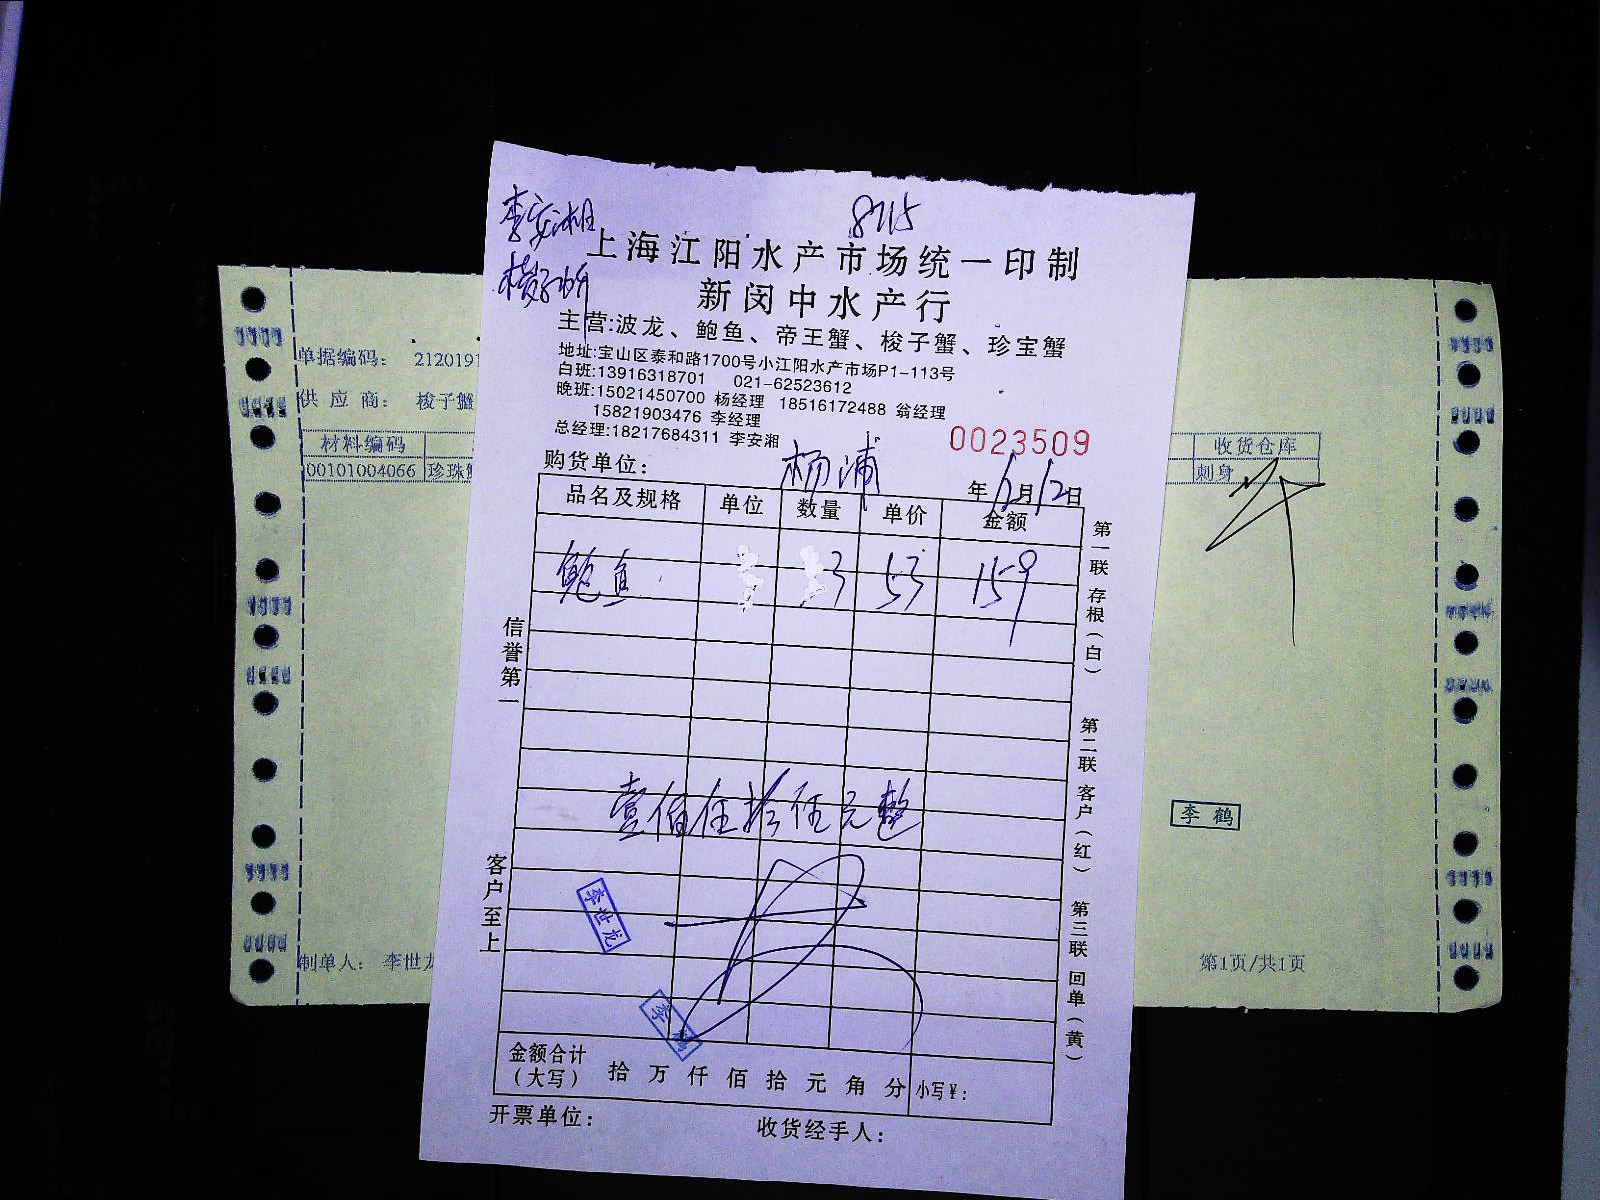 李安湘
8715
梭子蟹
上海江阳水产市场统一印制
新闵中水产行
主营:波龙、鲍鱼、帝王蟹、梭子蟹、珍宝蟹
地址:宝山区泰和路1700号小江阳水产市场P1-113号
白班:13916318701 021-62523612
晚班:15021450700 杨经理 18516172488 翁经理
15821903476 李经理
总经理:18217684311 李安湘
0023509
购货单位: 杨浦
年12月12日
品名及规格 单位 数量 单价 金额
鲍鱼 3 53 159
壹佰伍拾伍元整
李世龙
李鹤
金额合计
(大写) 拾 万 仟 佰 拾 元 角 分 小写¥:
开票单位: 收货经手人:
信誉第一
客户至上
第一联 存根(白)
第二联 客户(红)
第三联 回单(黄)
单据编码: 2120191
供应商: 梭子蟹
材料编码
00101004066 珍珠
制单人: 李世龙
收货仓库
刺身
李鹤
第1页/共1页